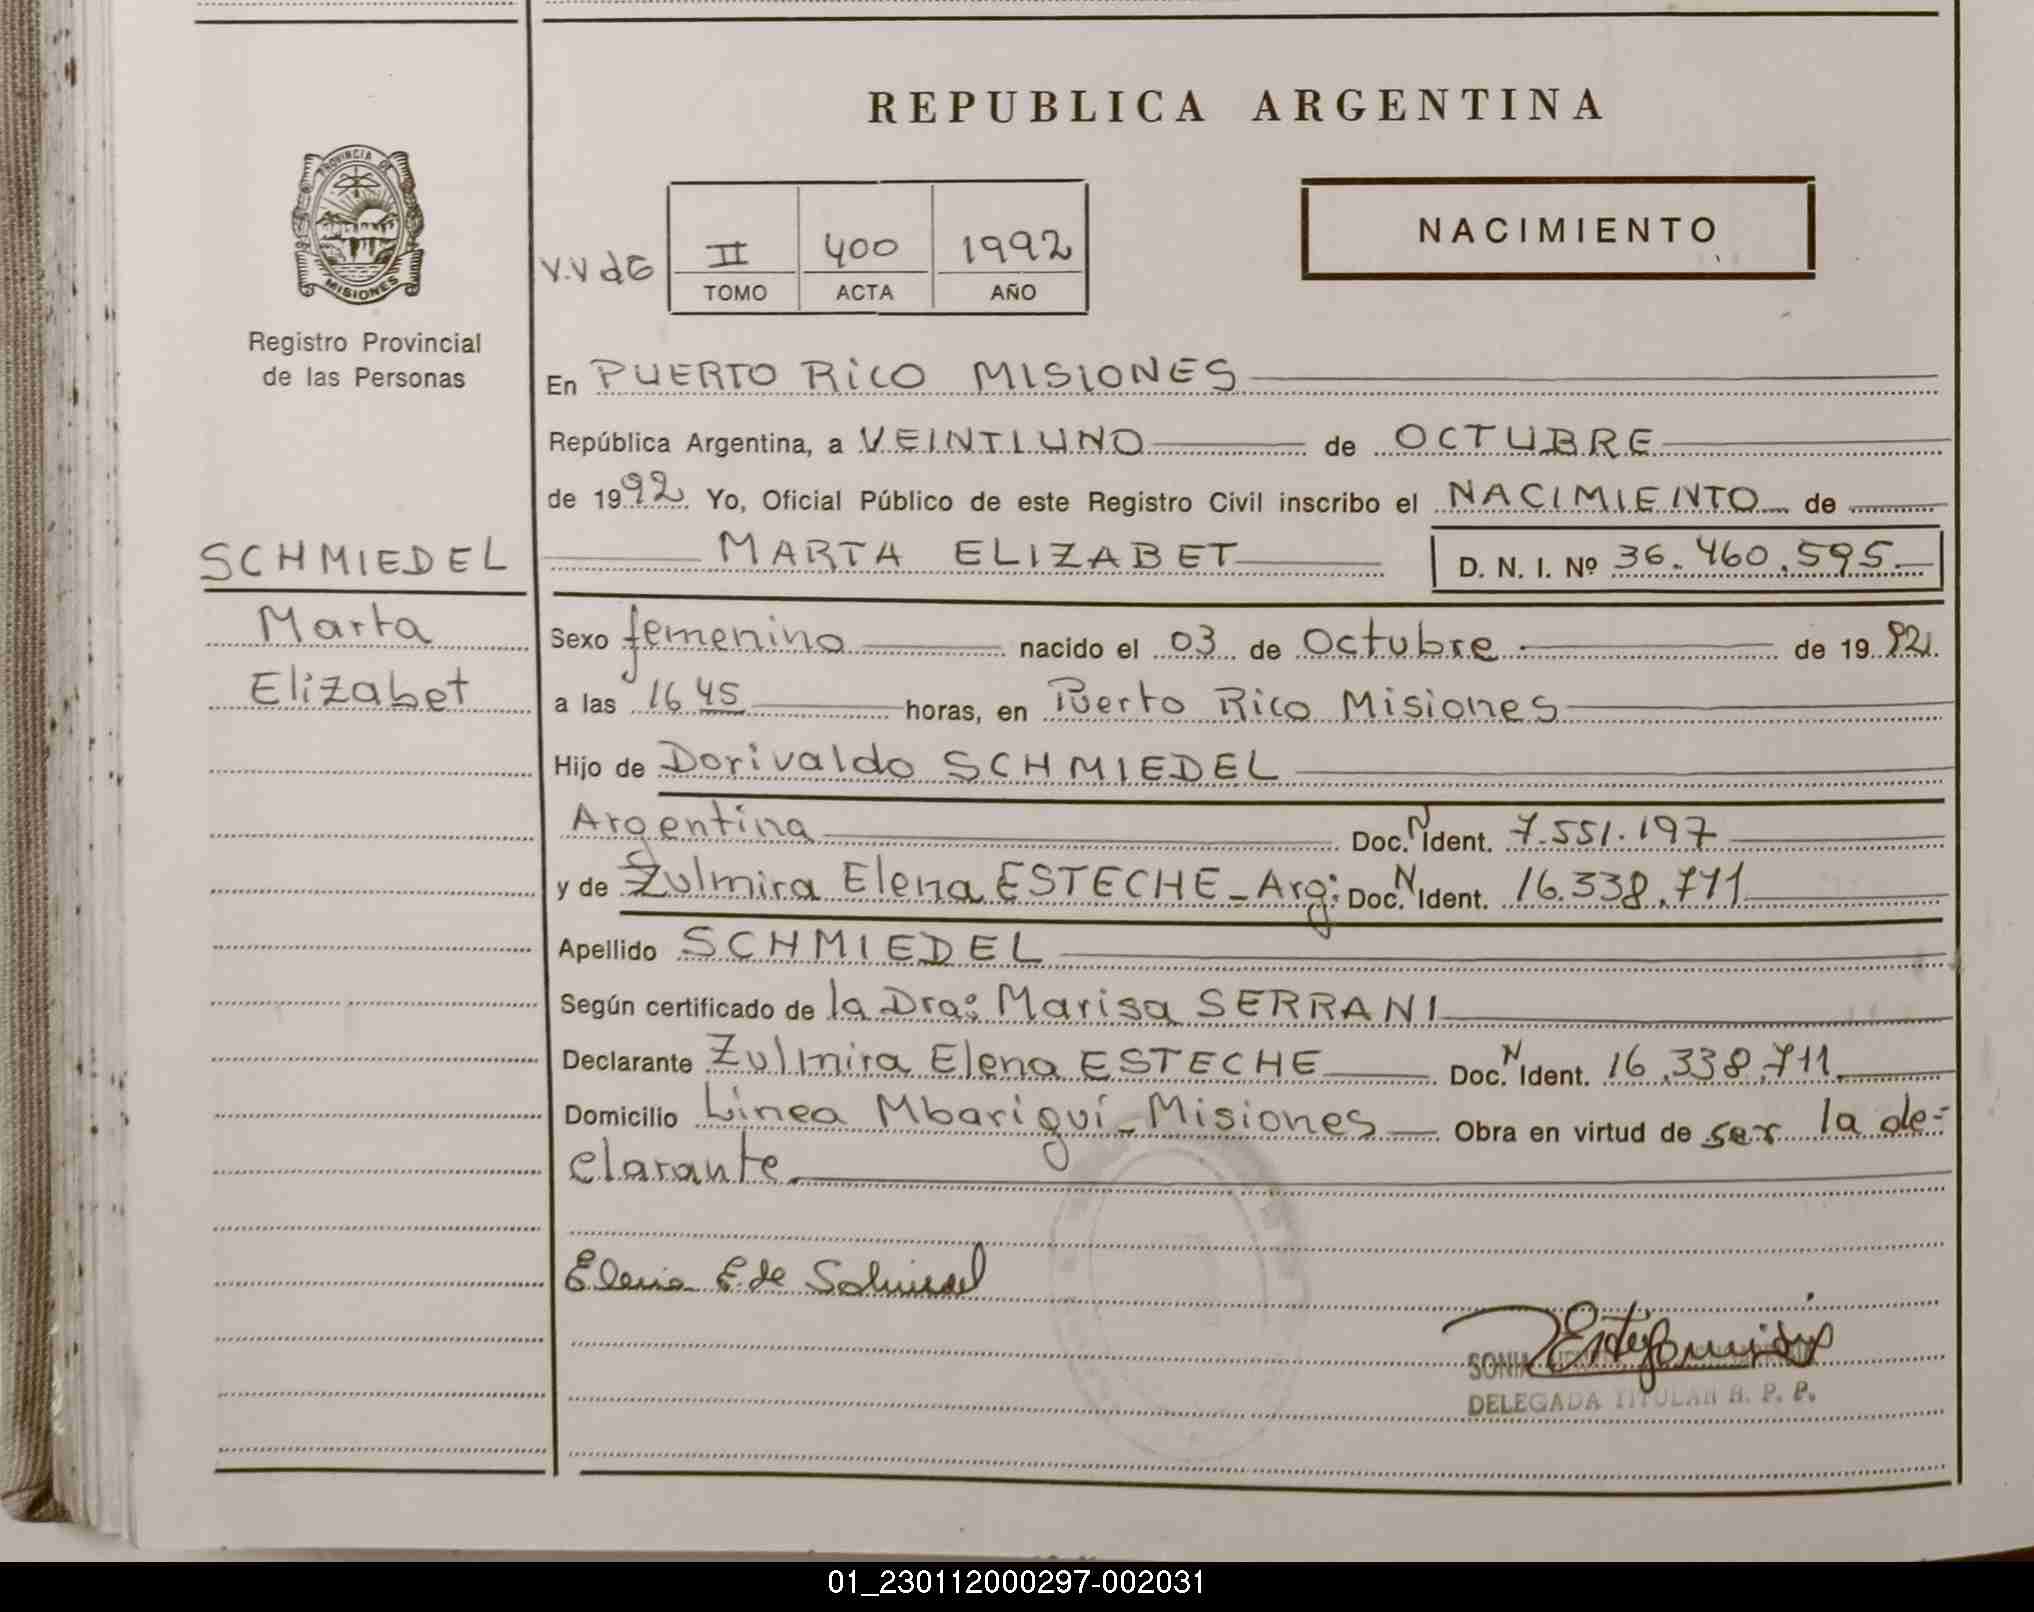 REPUBLICA ARGENTINA
PROVINCIA DE
MISIONES
Registro Provincial
de las Personas
NACIMIENTO
V.V de G
II 400 1992
TOMO ACTA AÑO
En PUERTO RICO MISIONES
República Argentina, a VEINTIUNO de OCTUBRE
de 1992 Yo, Oficial Público de este Registro Civil inscribo el NACIMIENTO de
SCHMIEDEL
MARTA ELIZABET D. N. I. Nº 36.460.595
Marta
Elizabet
Sexo femenino nacido el 03 de Octubre de 1992.
a las 16 45 horas, en Puerto Rico Misiones
Hijo de Dorivaldo SCHMIEDEL
Argentina Doc. N Ident. 7.551.197
y de Zulmira Elena ESTECHE - Arg: Doc. N Ident. 16.338.711
Apellido SCHMIEDEL
Según certificado de la Dra: Marisa SERRANI
Declarante Zulmira Elena ESTECHE Doc. N Ident. 16.338.711
Domicilio Línea Mbariguí - Misiones Obra en virtud de ser la de-
clarante
Elena E. de
SONIA
DELEGADA TITULAR R. P. P.
01_230112000297-002031